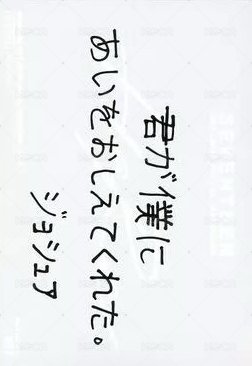 君が僕に
あいをおしえてくれた。
ジョシュア